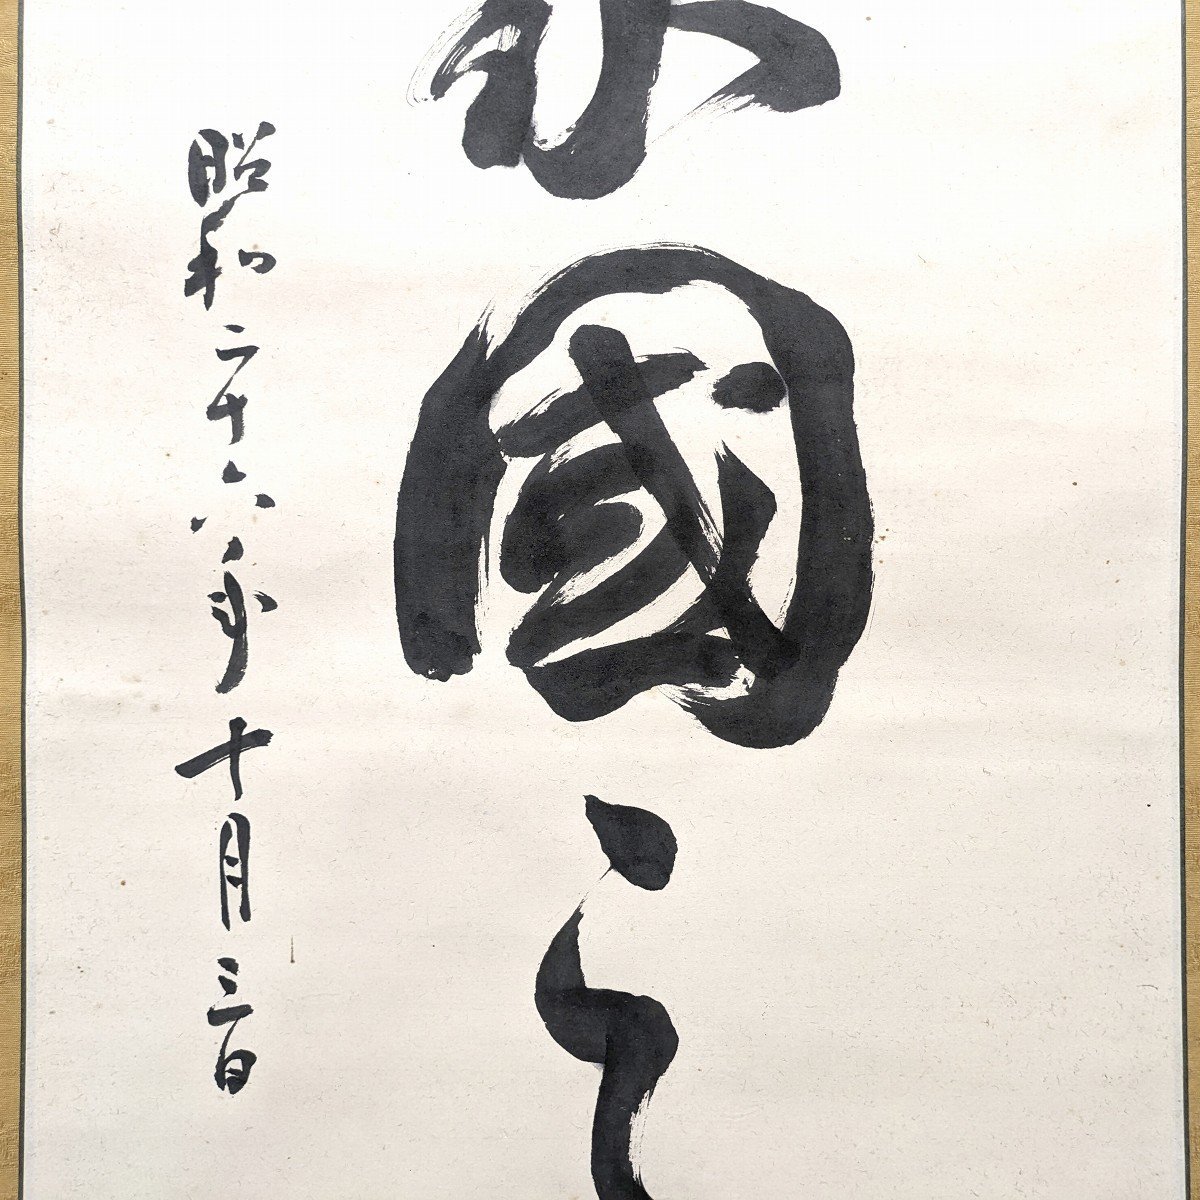 國之
昭和二十六年十月三日